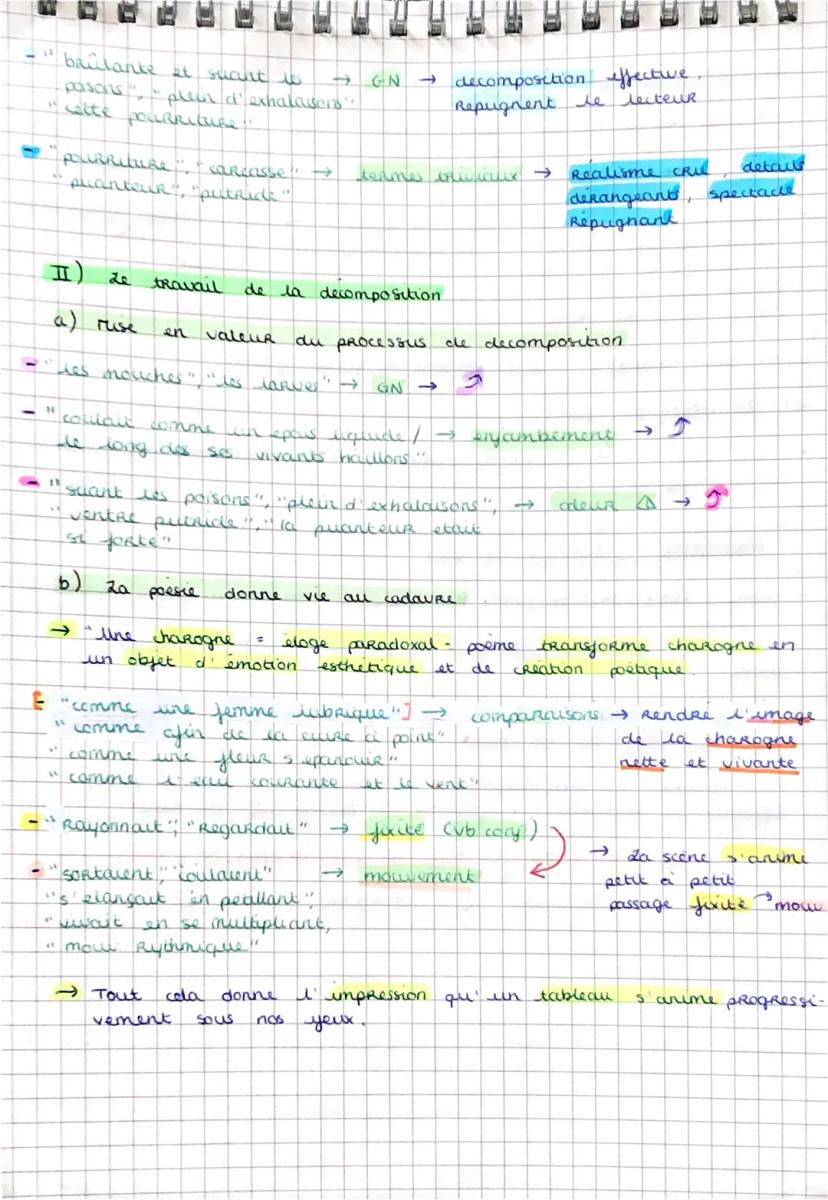 - "brûlante et suant les → GN → décomposition effective,
poisons", "plein d'exhalaisons" Répugnent le lecteur
"cette pourriture"
- "pourriture", "carcasse" → termes triviaux → Réalisme cru, détails
"puanteur", "putride" dérangeants, spectacle
Répugnant
II) Le travail de la décomposition
a) mise en valeur du processus de decomposition
- "les mouches", "les larves" → GN → ⤴
- "coulait comme un épais liquide / → enjambement → ⤴
le long des ses vivants haillons"
- "suant les poisons", "plein d'exhalaisons", → odeur → ⤴
"ventre putride", "la puanteur etait
si forte"
b) La poésie donne vie au cadavre
→ "Une charogne = éloge paradoxal - poème transforme charogne en
un objet d'émotion esthétique et de création poétique.
- "comme une femme lubrique"] → comparaisons → Rendre l'image
"comme afin de la cuire à point" de la charogne
"comme une fleur s'epanouir" nette et vivante
"comme l'eau courante et le vent"
- "Rayonnait", "Regardait" → fixité (vb conj)
→ La scène s'anime
- "sortaient", "coulaient" → mouvement petit à petit
"s'élançait en petillant", passage fixité → mouv
"vivait en se multipliant,
"mouv Rythmique"
→ Tout cela donne l'impression qu'un tableau s'anime progressi-
vement sous nos yeux.